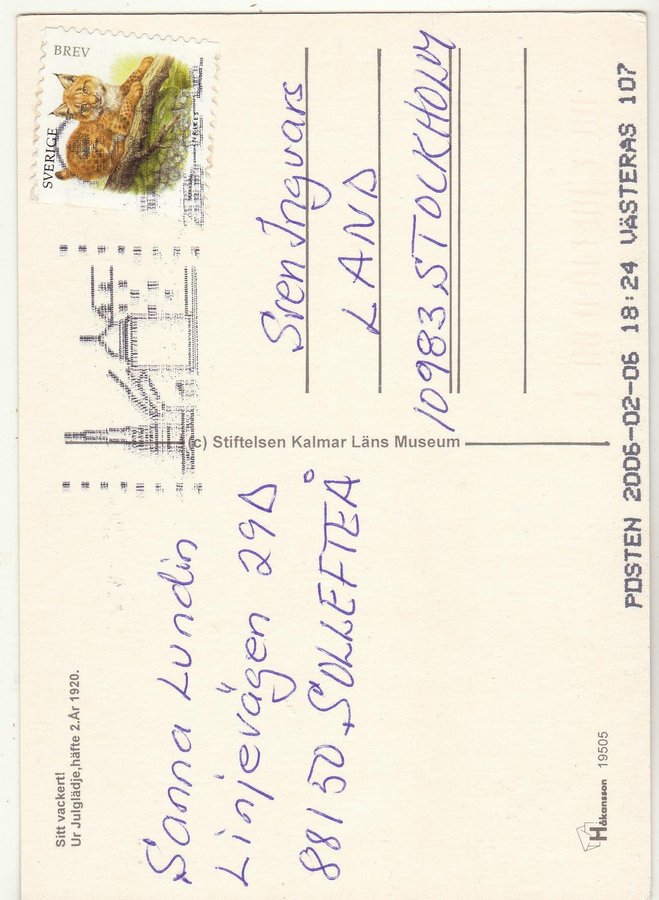 BREV
SVERIGE
Sitt vackert!
Ur Julglädje,häfte 2.År 1920.
Sanna Lundin
Linjevägen 29D
88150 SOLLEFTEÅ
(c) Stiftelsen Kalmar Läns Museum
Sven Ingvars
LAND
10983 STOCKHOLM
Håkansson
19505
POSTEN 2006-02-06 18:24 VÄSTERÅS 107